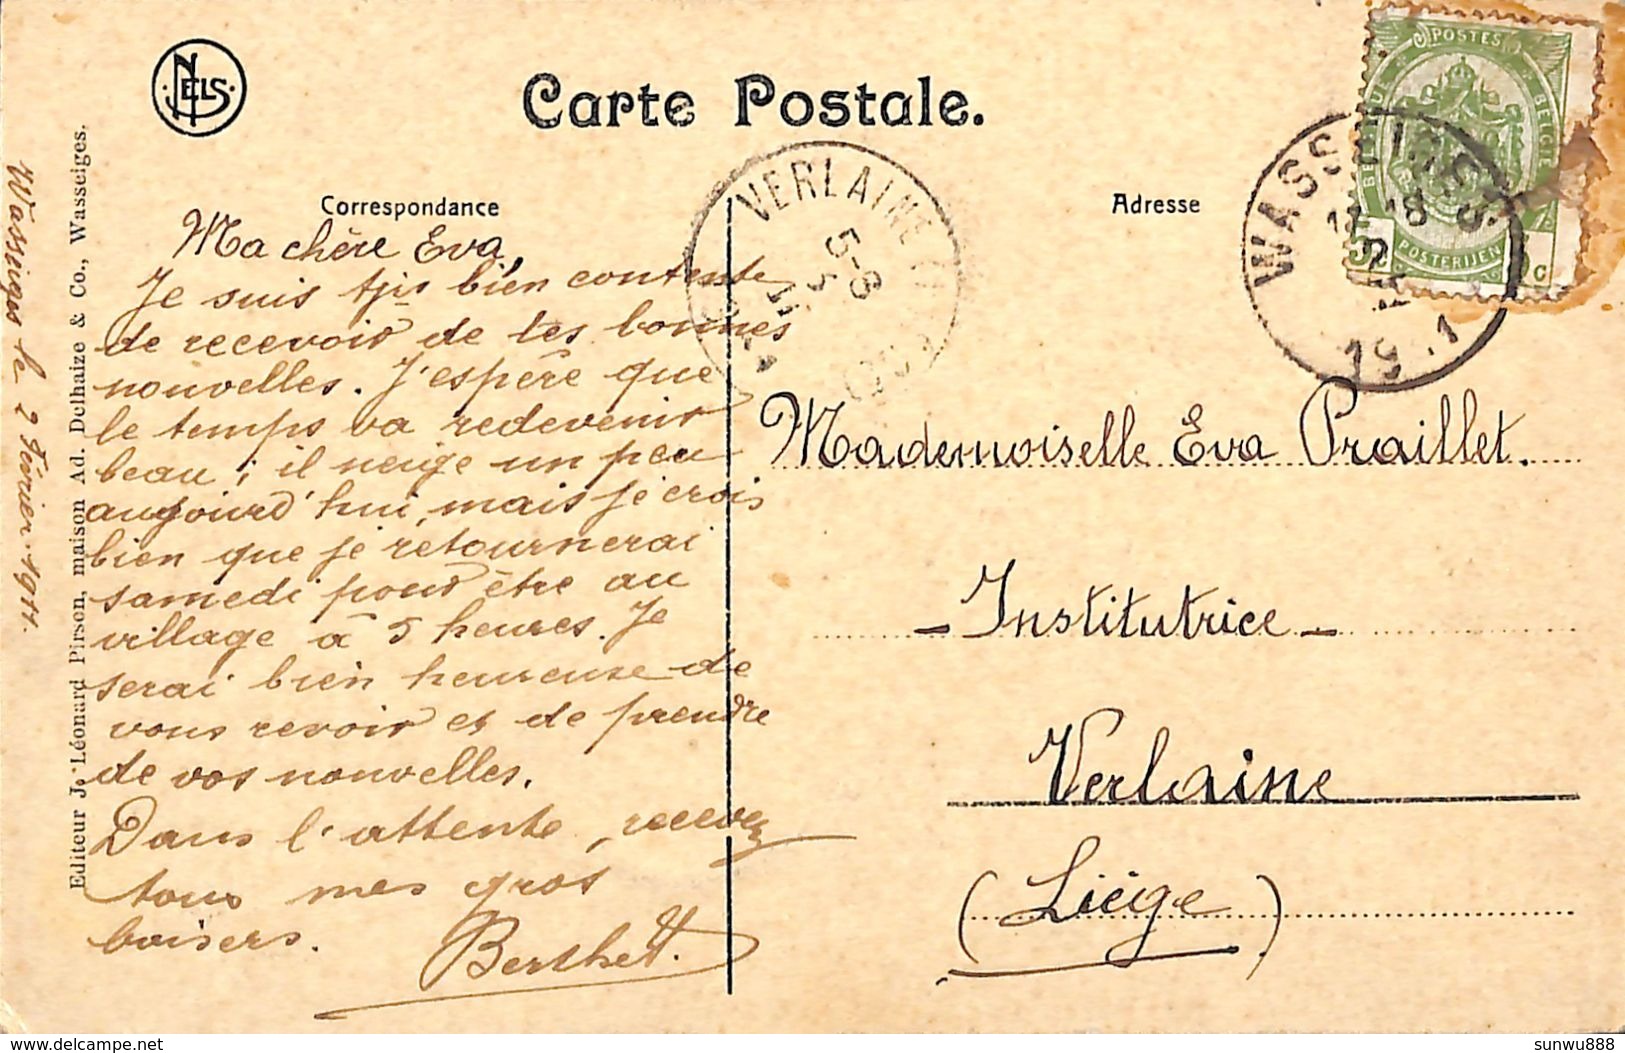 NELS
Carte Postale.
POSTES
BELGIE
POSTERIJEN
WASSEIGES
VERLAINE
5-6
Correspondance
Adresse
Ma chère Eva,
Je suis tjrs bien contente
de recevoir de tes bonnes
nouvelles. J'espère que
le temps va redevenir
beau ; il neige un peu
aujourd'hui, mais je crois
bien que je retournerai
samedi pour être au
village à 5 heures. Je
serai bien heureuse de
vous revoir et de prendre
de vos nouvelles.
Dans l'attente, recevez
tous mes gros
baisers.
Berthe
Mademoiselle Eva Praillet.
- Institutrice -
Verlaine
(Liége)
Wasseiges le 2 Février 1911.
Editeur J. Léonard Pirson, maison Ad. Delhaize & Co., Wasseiges.
delcampe.net
sunwu888